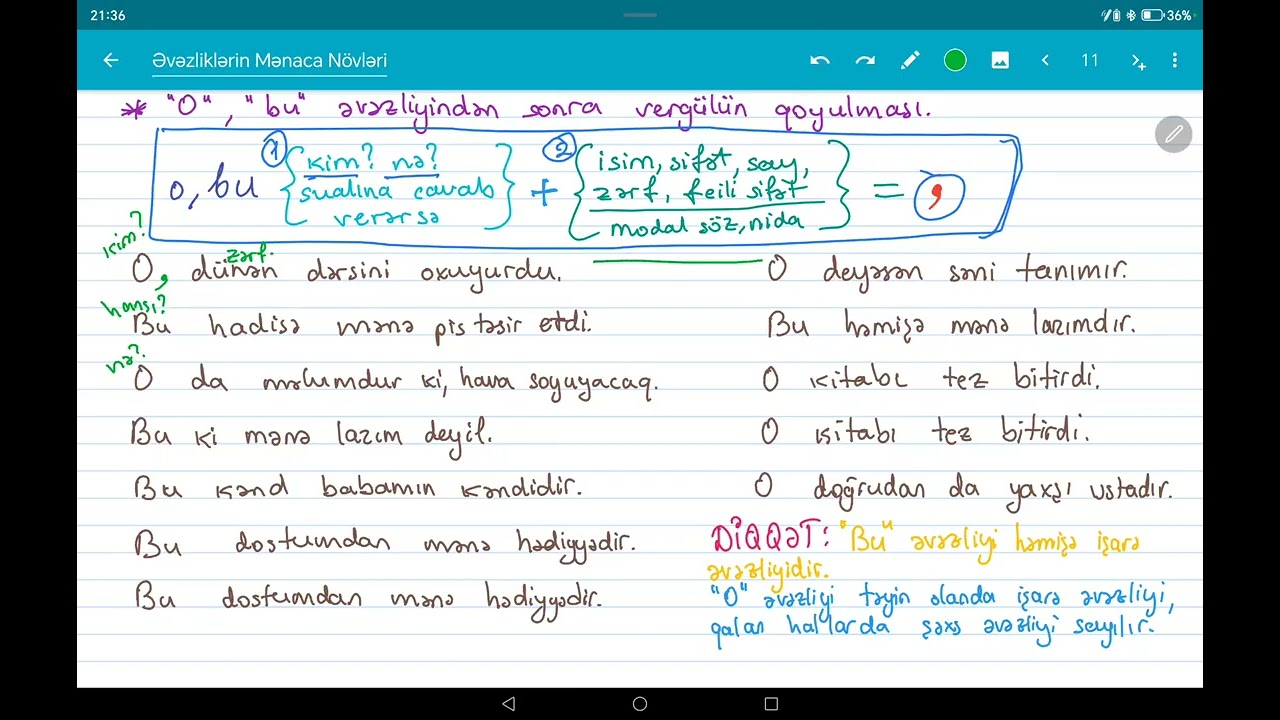 21:36
36%
Əvəzliklərin Mənaca Növləri
11
* "O", "bu" əvəzliyindən sonra vergülün qoyulması.
o, bu ① {kim? nə? sualına cavab verərsə} + ② {isim, sifət, say, zərf, feili sifət modal söz, nida} = ,
kim?
zərf.
O, dünən dərsini oxuyurdu.
hansı?
Bu hadisə mənə pis təsir etdi.
nə?
O da məlumdur ki, hava soyuyacaq.
Bu ki mənə lazım deyil.
Bu kənd babamın kəndidir.
Bu dostumdan mənə hədiyyədir.
Bu dostumdan mənə hədiyyədir.
O deyəsən səni tanımır.
Bu həmişə mənə lazımdır.
O kitabı tez bitirdi.
O kitabı tez bitirdi.
O doğrudan da yaxşı ustadır.
DİQQƏT: "Bu" əvəzliyi həmişə işarə
əvəzliyidir.
"O" əvəzliyi təyin olanda işarə əvəzliyi,
qalan hallarda şəxs əvəzliyi sayılır.